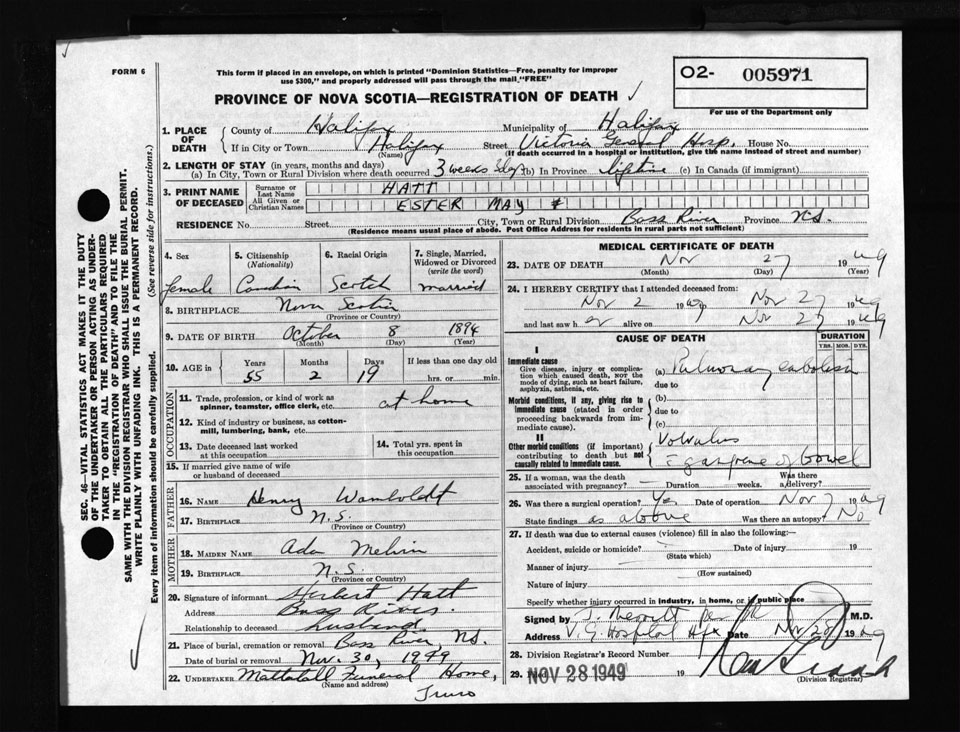 FORM 6
This form if placed in an envelope, on which is printed "Dominion Statistics—Free, penalty for improper
use $300," and properly addressed will pass through the mail, "FREE"
O2- 005971
For use of the Department only
PROVINCE OF NOVA SCOTIA—REGISTRATION OF DEATH ✓
SEC. 46—VITAL STATISTICS ACT MAKES IT THE DUTY
OF THE UNDERTAKER OR PERSON ACTING AS UNDER-
TAKER TO OBTAIN ALL THE PARTICULARS REQUIRED
IN THE "REGISTRATION OF DEATH" AND TO FILE THE
SAME WITH THE DIVISION REGISTRAR WHO SHALL ISSUE THE BURIAL PERMIT.
WRITE PLAINLY WITH UNFADING INK. THIS IS A PERMANENT RECORD.
Every item of information should be carefully supplied. (See reverse side for instructions.)
1. PLACE OF DEATH
County of Halifax Municipality of Halifax
If in City or Town Halifax Street Victoria General Hosp. House No.
(Name) (If death occurred in a hospital or institution, give the name instead of street and number)
2. LENGTH OF STAY (in years, months and days)
(a) In City, Town or Rural Division where death occurred 3 weeks 3 days (b) In Province lifetime (c) In Canada (if immigrant)
3. PRINT NAME OF DECEASED
Surname or Last Name HATT
All Given or Christian Names ESTER MAY
RESIDENCE No. Street City, Town or Rural Division Bass River Province N.S.
(Residence means usual place of abode. Post Office Address for residents in rural parts not sufficient)
4. Sex female
5. Citizenship (Nationality) Canadian
6. Racial Origin Scotch
7. Single, Married, Widowed or Divorced (write the word) married
8. BIRTHPLACE Nova Scotia
(Province or Country)
9. DATE OF BIRTH October 8 1894
(Month) (Day) (Year)
10. AGE in Years Months Days If less than one day old
55 2 19 hrs. or min.
OCCUPATION
11. Trade, profession or kind of work as spinner, teamster, office clerk, etc. at home
12. Kind of industry or business, as cotton-mill, lumbering, bank, etc.
13. Date deceased last worked at this occupation
14. Total yrs. spent in this occupation
15. If married give name of wife or husband of deceased
FATHER
16. NAME Henry Wamboldt
17. BIRTHPLACE N.S.
(Province or Country)
MOTHER
18. MAIDEN NAME Ada Melvin
19. BIRTHPLACE N.S.
(Province or Country)
20. Signature of informant Herbert Hatt
Address Bass River.
Relationship to deceased husband
21. Place of burial, cremation or removal Bass River, N.S.
Date of burial or removal Nov. 30, 1949
22. UNDERTAKER Mattatall Funeral Home,
(Name and address) Truro
MEDICAL CERTIFICATE OF DEATH
23. DATE OF DEATH Nov 27 1949
(Month) (Day) (Year)
24. I HEREBY CERTIFY that I attended deceased from:
Nov 2 1949 Nov 27 1949
and last saw her alive on Nov 27 1949
CAUSE OF DEATH
DURATION
YRS. MOS. DYS.
I
Immediate cause
Give disease, injury or complication which caused death, not the mode of dying, such as heart failure, asphyxia, asthenia, etc.
(a) Pulmonary embolism
due to
Morbid conditions, if any, giving rise to immediate cause (stated in order proceeding backwards from immediate cause).
(b)
due to
(c)
II
Other morbid conditions (if important) contributing to death but not causally related to immediate cause.
Volvulus
c̄ gangrene of bowel
25. If a woman, was the death associated with pregnancy? Duration weeks. Was there a delivery?
26. Was there a surgical operation? Yes Date of operation Nov 7 1949
State findings as above Was there an autopsy? No
27. If death was due to external causes (violence) fill in also the following:—
Accident, suicide or homicide? Date of injury 19
(State which)
Manner of injury
(How sustained)
Nature of injury
Specify whether injury occurred in industry, in home, or in public place
Signed by M.D.
Address V. G. Hospital Hfx Date Nov 28 1949
28. Division Registrar's Record Number
29. NOV 28 1949 19
(Division Registrar)